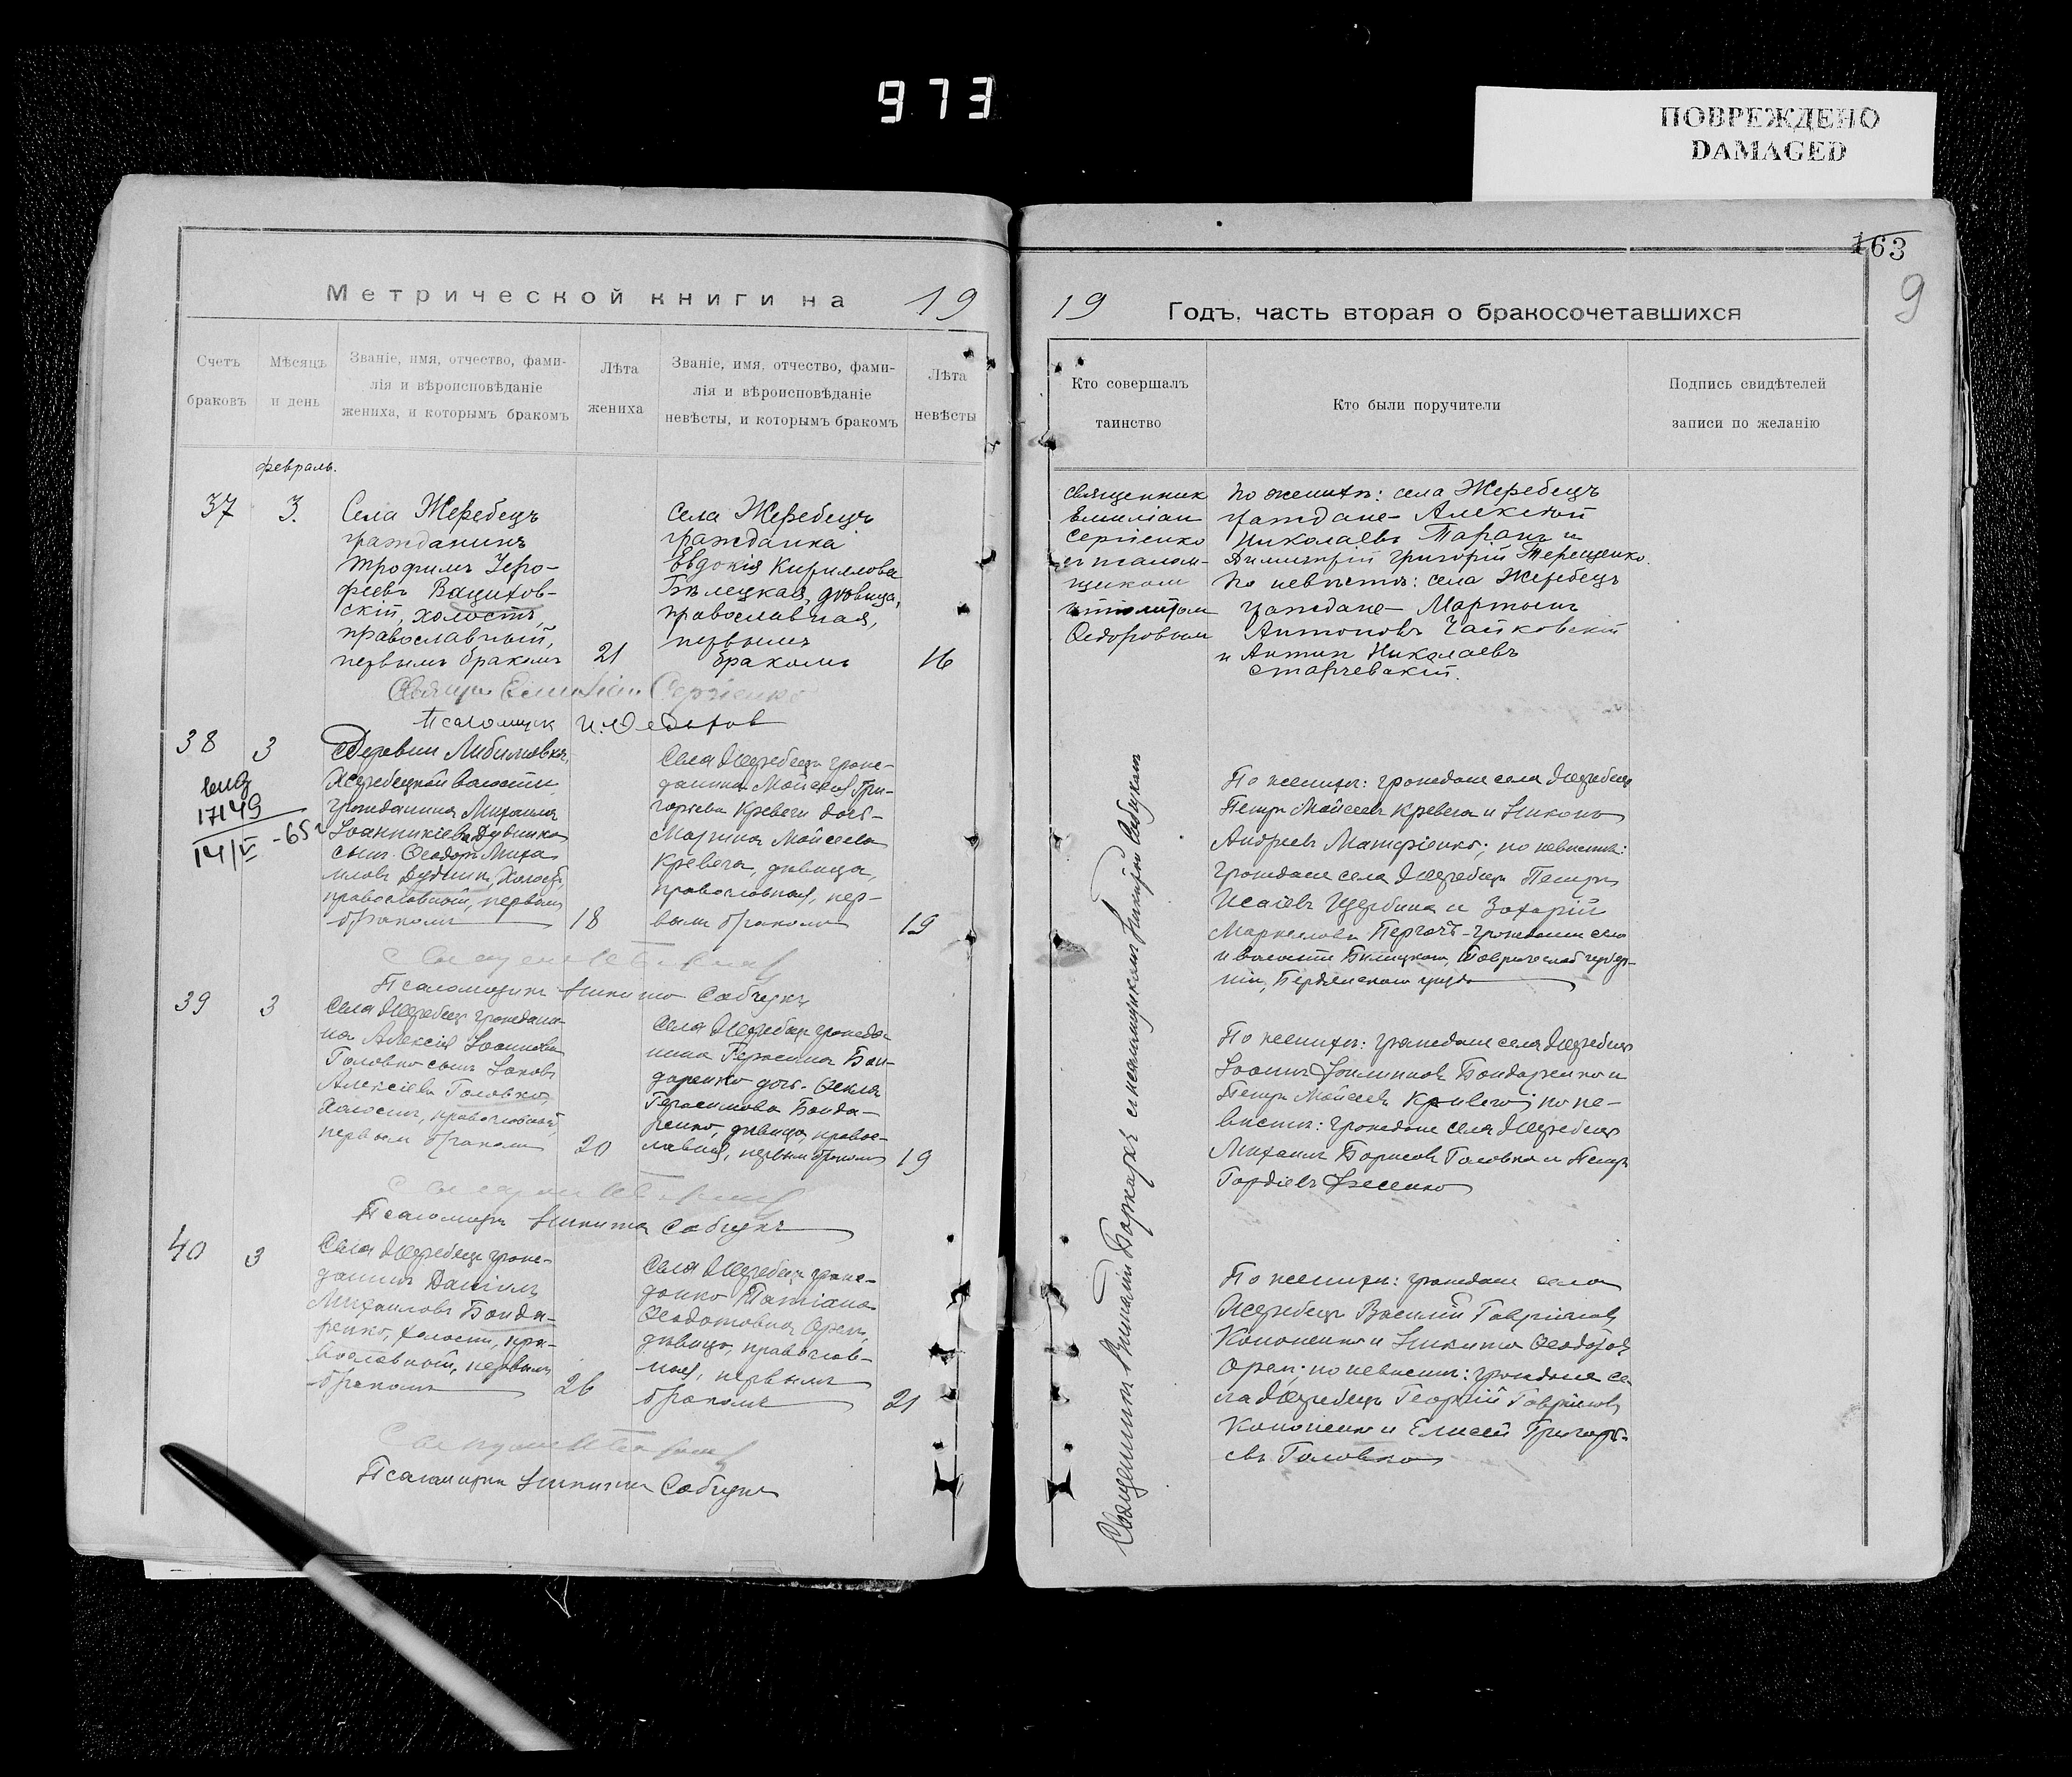 973
ПОВРЕЖДЕНО
DAMAGED
163
9
Метрической книги на 19
Счетъ браковъ
Мѣсяцъ и день
Званіе, имя, отчество, фами-
лія и вѣроисповѣданіе
жениха, и которымъ бракомъ
Лѣта
жениха
Званіе, имя, отчество, фами-
лія и вѣроисповѣданіе
невѣсты, и которымъ бракомъ
Лѣта
невѣсты
февраль.
37
3.
Села Жеребецъ
гражданинъ
Трофимъ Іеро-
феевъ Вацихов-
скій, холостъ,
православный,
первымъ бракомъ
21
Села Жеребецъ
гражданка
Евдокія Кириллова
Бѣлецкая, дѣвица,
православная,
первымъ
бракомъ
16
Священ. Емиліан Сергіенко
Псаломщик
38
3
Деревни Любимовки,
Жеребецкой волости
гражданина Михаила
Іоанникіева Дудника
сынъ Феодотъ Миха
иловъ Дудникъ, холостъ,
православный, первымъ
бракомъ
18
Села Жеребецъ граж-
данина Моисея Гри-
горіева Кревеги дочь-
Марина Моисеева
Кревега, дѣвица,
православная, пер-
вымъ бракомъ
19
17149
14/V -65г
Псаломщикъ Никита Савчукъ
39
3
Села Жеребецъ граждани-
на Алексія Іоаннова
Головко сынъ Іаковъ
Алексіевъ Головко,
холостъ, православный,
первымъ бракомъ
20
Села Жеребецъ гражда-
нина Герасима Бон-
даренко дочь- Фекла
Герасимова Бонда-
ренко, дѣвица, правос-
лавная, первымъ бракомъ
19
Псаломщикъ Никита Савчукъ
40
3
Села Жеребецъ граж-
данинъ Даніилъ
Михаиловъ Бонда-
ренко, холостъ, пра-
вославный, первымъ
бракомъ
26
Села Жеребецъ граж-
данка Татіана
Феодотовна Орел,
дѣвица, православ-
ная, первымъ
бракомъ
21
Псаломщикъ Никита Савчукъ
19 Годъ, часть вторая о бракосочетавшихся
Кто совершалъ
таинство
Кто были поручители
Подпись свидѣтелей
записи по желанію
священник
Емиліан
Сергіенко
съ псалом-
щиком
Федоровым
По женихѣ: села Жеребецъ
граждане- Алексій
Николаевъ Таранъ и
Димитрій Григорій Терещенко.
По невѣстѣ: села Жеребецъ
граждане- Мартынъ
Антоновъ Чайковскій
и Антип Николаевъ
Старчевскій.
По женихѣ: граждане села Жеребецъ
Петръ Моисеевъ Кревега и Никонъ
Андреевъ Матфіенко; по невѣстѣ:
граждане села Жеребецъ Петръ
Исаіевъ Щербина и Захарій
Маркеловъ Пергатъ- граждане села
и волости Бѣлицкой, Таврической губер-
ніи, Бердянскаго уѣзда
По женихѣ: граждане села Жеребецъ
Іоаннъ Филиповъ Бондаренко и
Петръ Моисеевъ Кривега; по не-
вѣстѣ: граждане села Жеребецъ
Михаилъ Борисовъ Головко и Петръ
Гордіевъ Фесенко
По женихѣ: граждане села
Жеребецъ Василій Гавріиловъ
Кононенко и Никита Феодотовъ
Орел; по невѣстѣ: граждане се
ла Жеребецъ Георгій Гавріиловъ
Кононенко и Елисей Григорі-
евъ Головко
Священникъ Виталій Боржаръ съ псаломщикомъ Никитой Савчукомъ